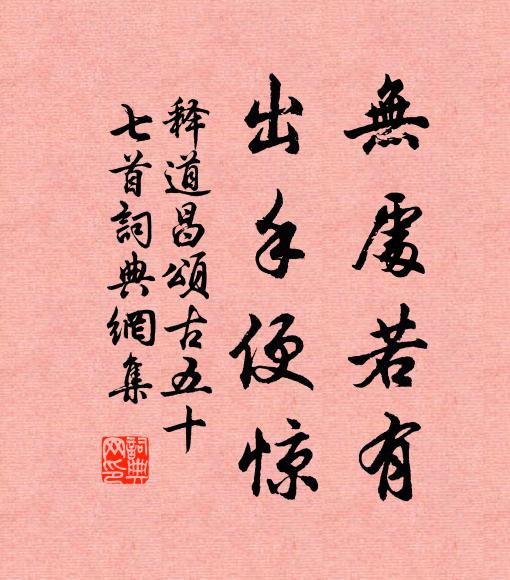 無處若有
出手便惊
释道昌頌古五十
七首詞典網集
詞典
网印